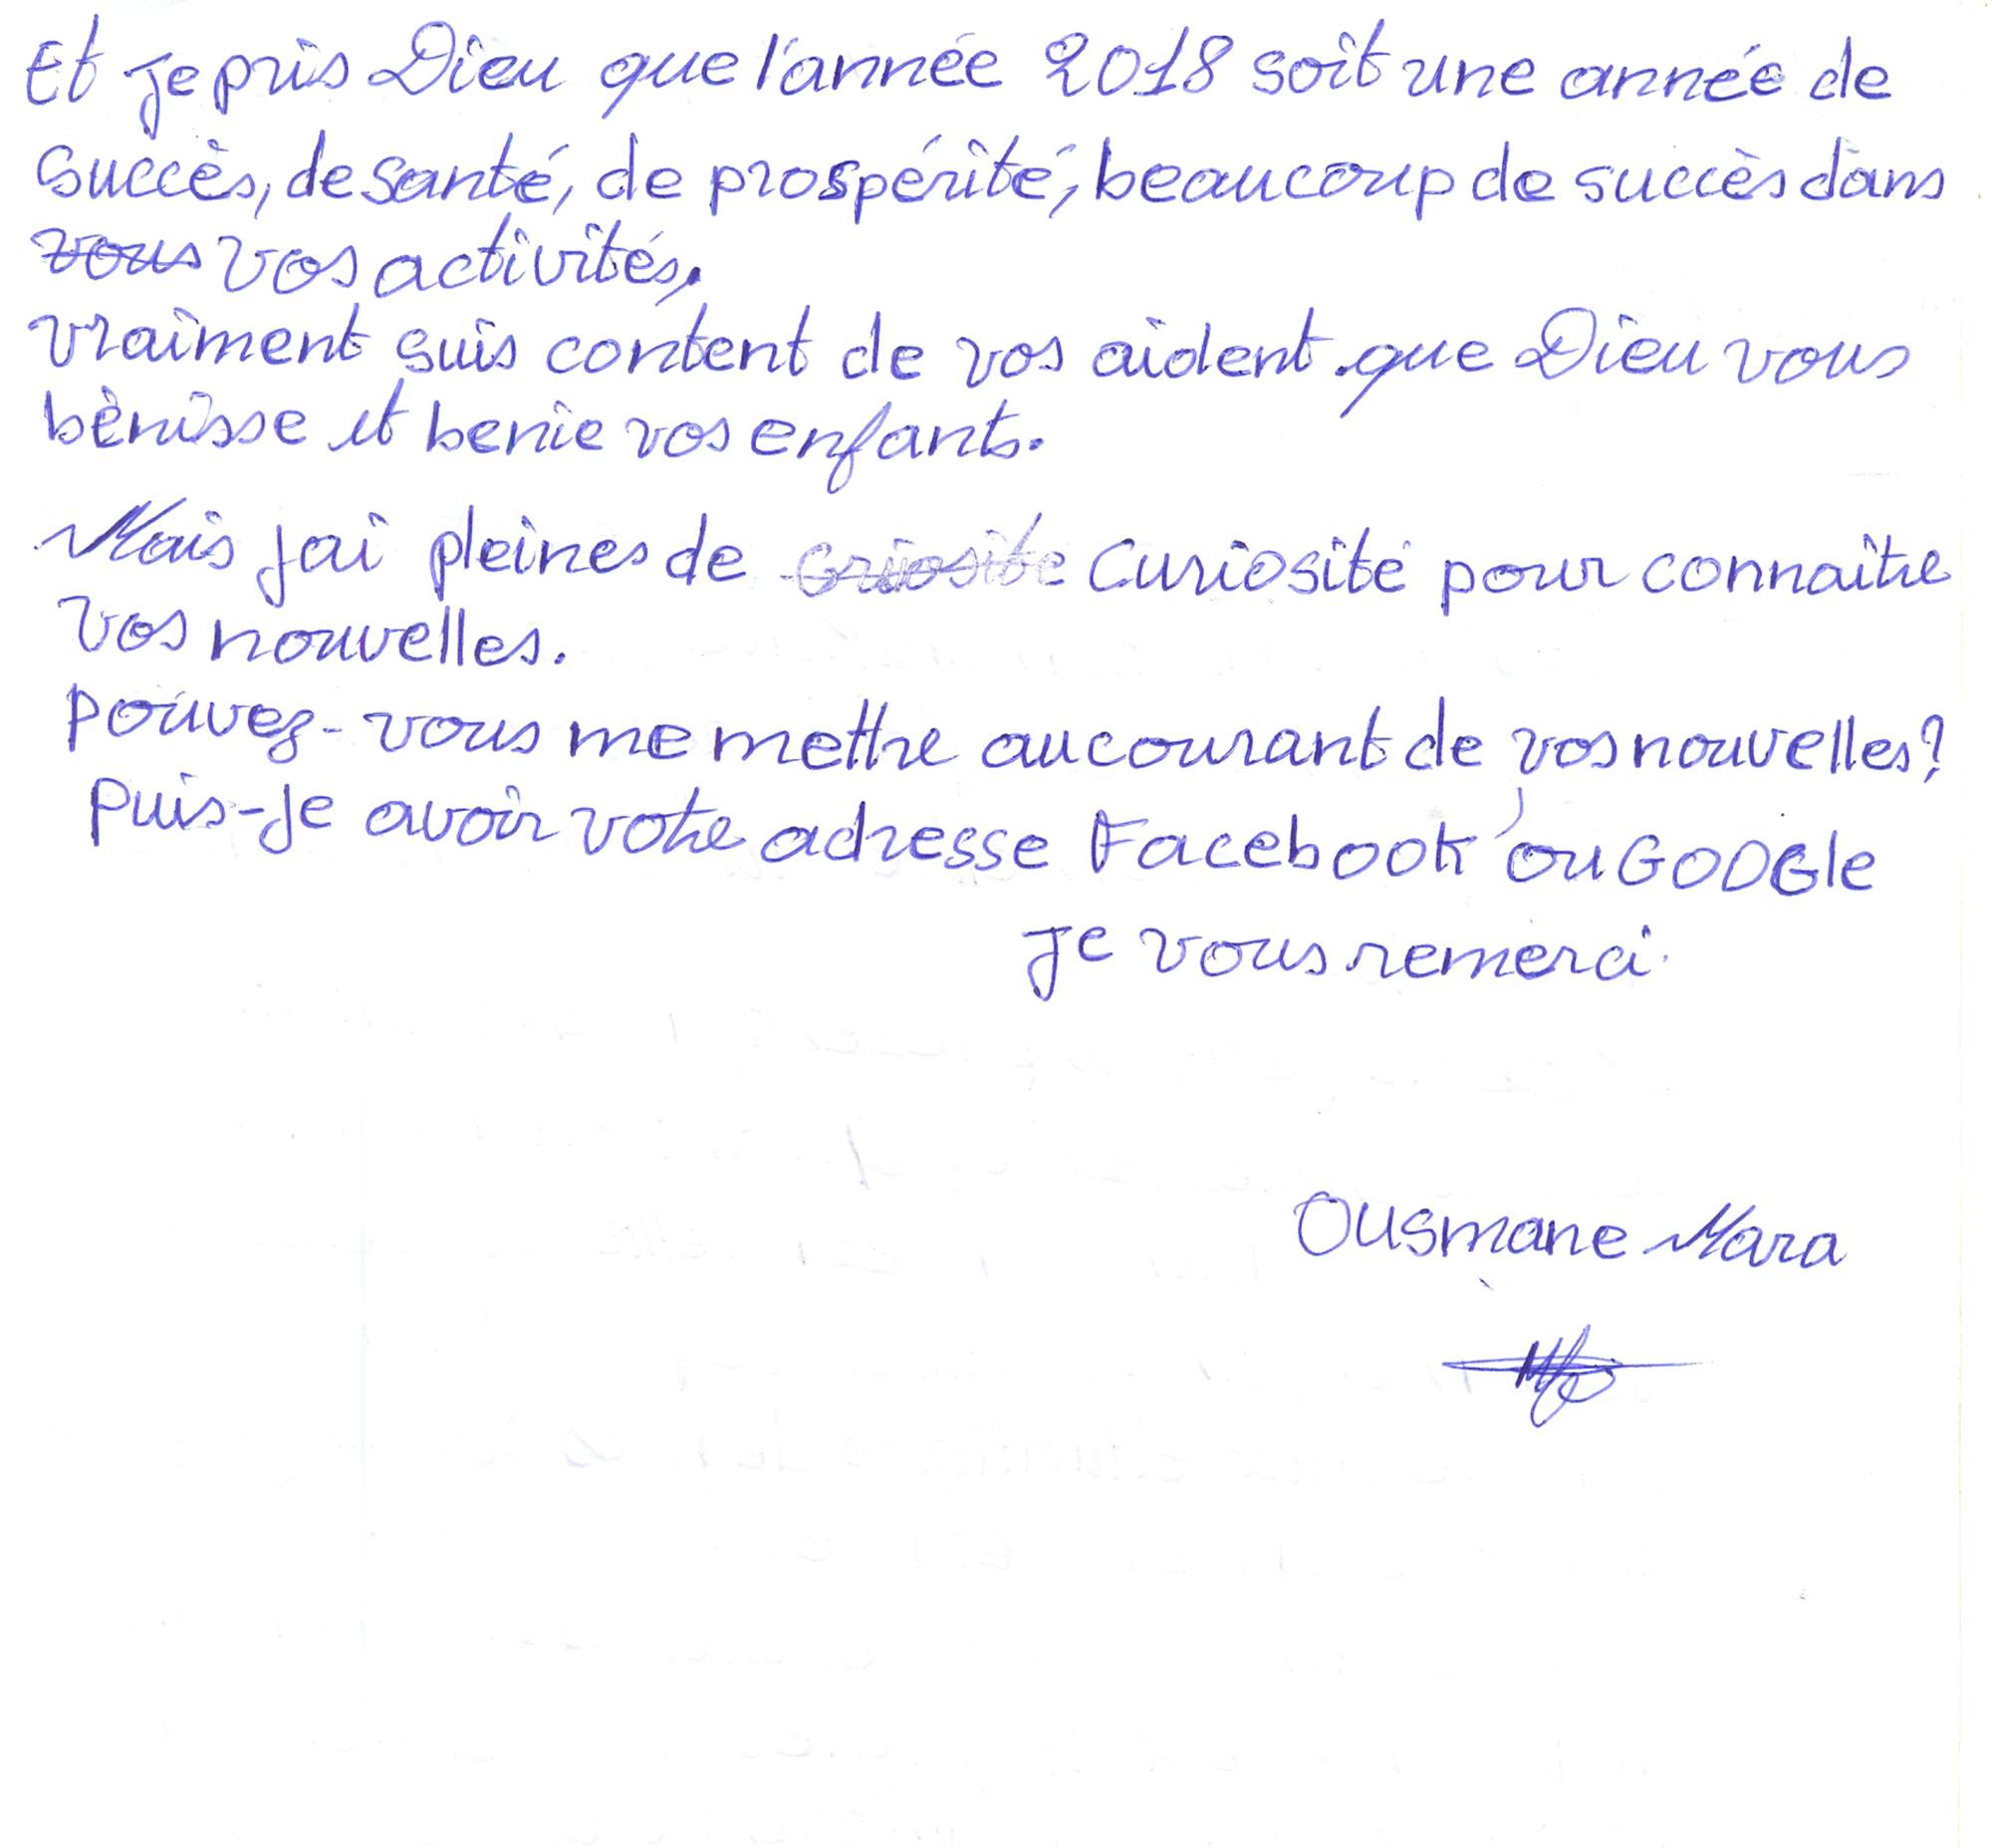 Et je pris Dieu que l'année 2018 soit une année de
succès, de santé, de prospérité, beaucoup de succès dans
vous vos activités.
vraiment suis content de vos aident. que Dieu vous
bènisse et benie vos enfants.
Mais jai pleines de curiosité pour connaitre
vos nouvelles.
pouvez-vous me mettre au courant de vos nouvelles?
Puis-je avoir votre adresse Facebook ou GOOGle
je vous remerci.
Ousmane Mara